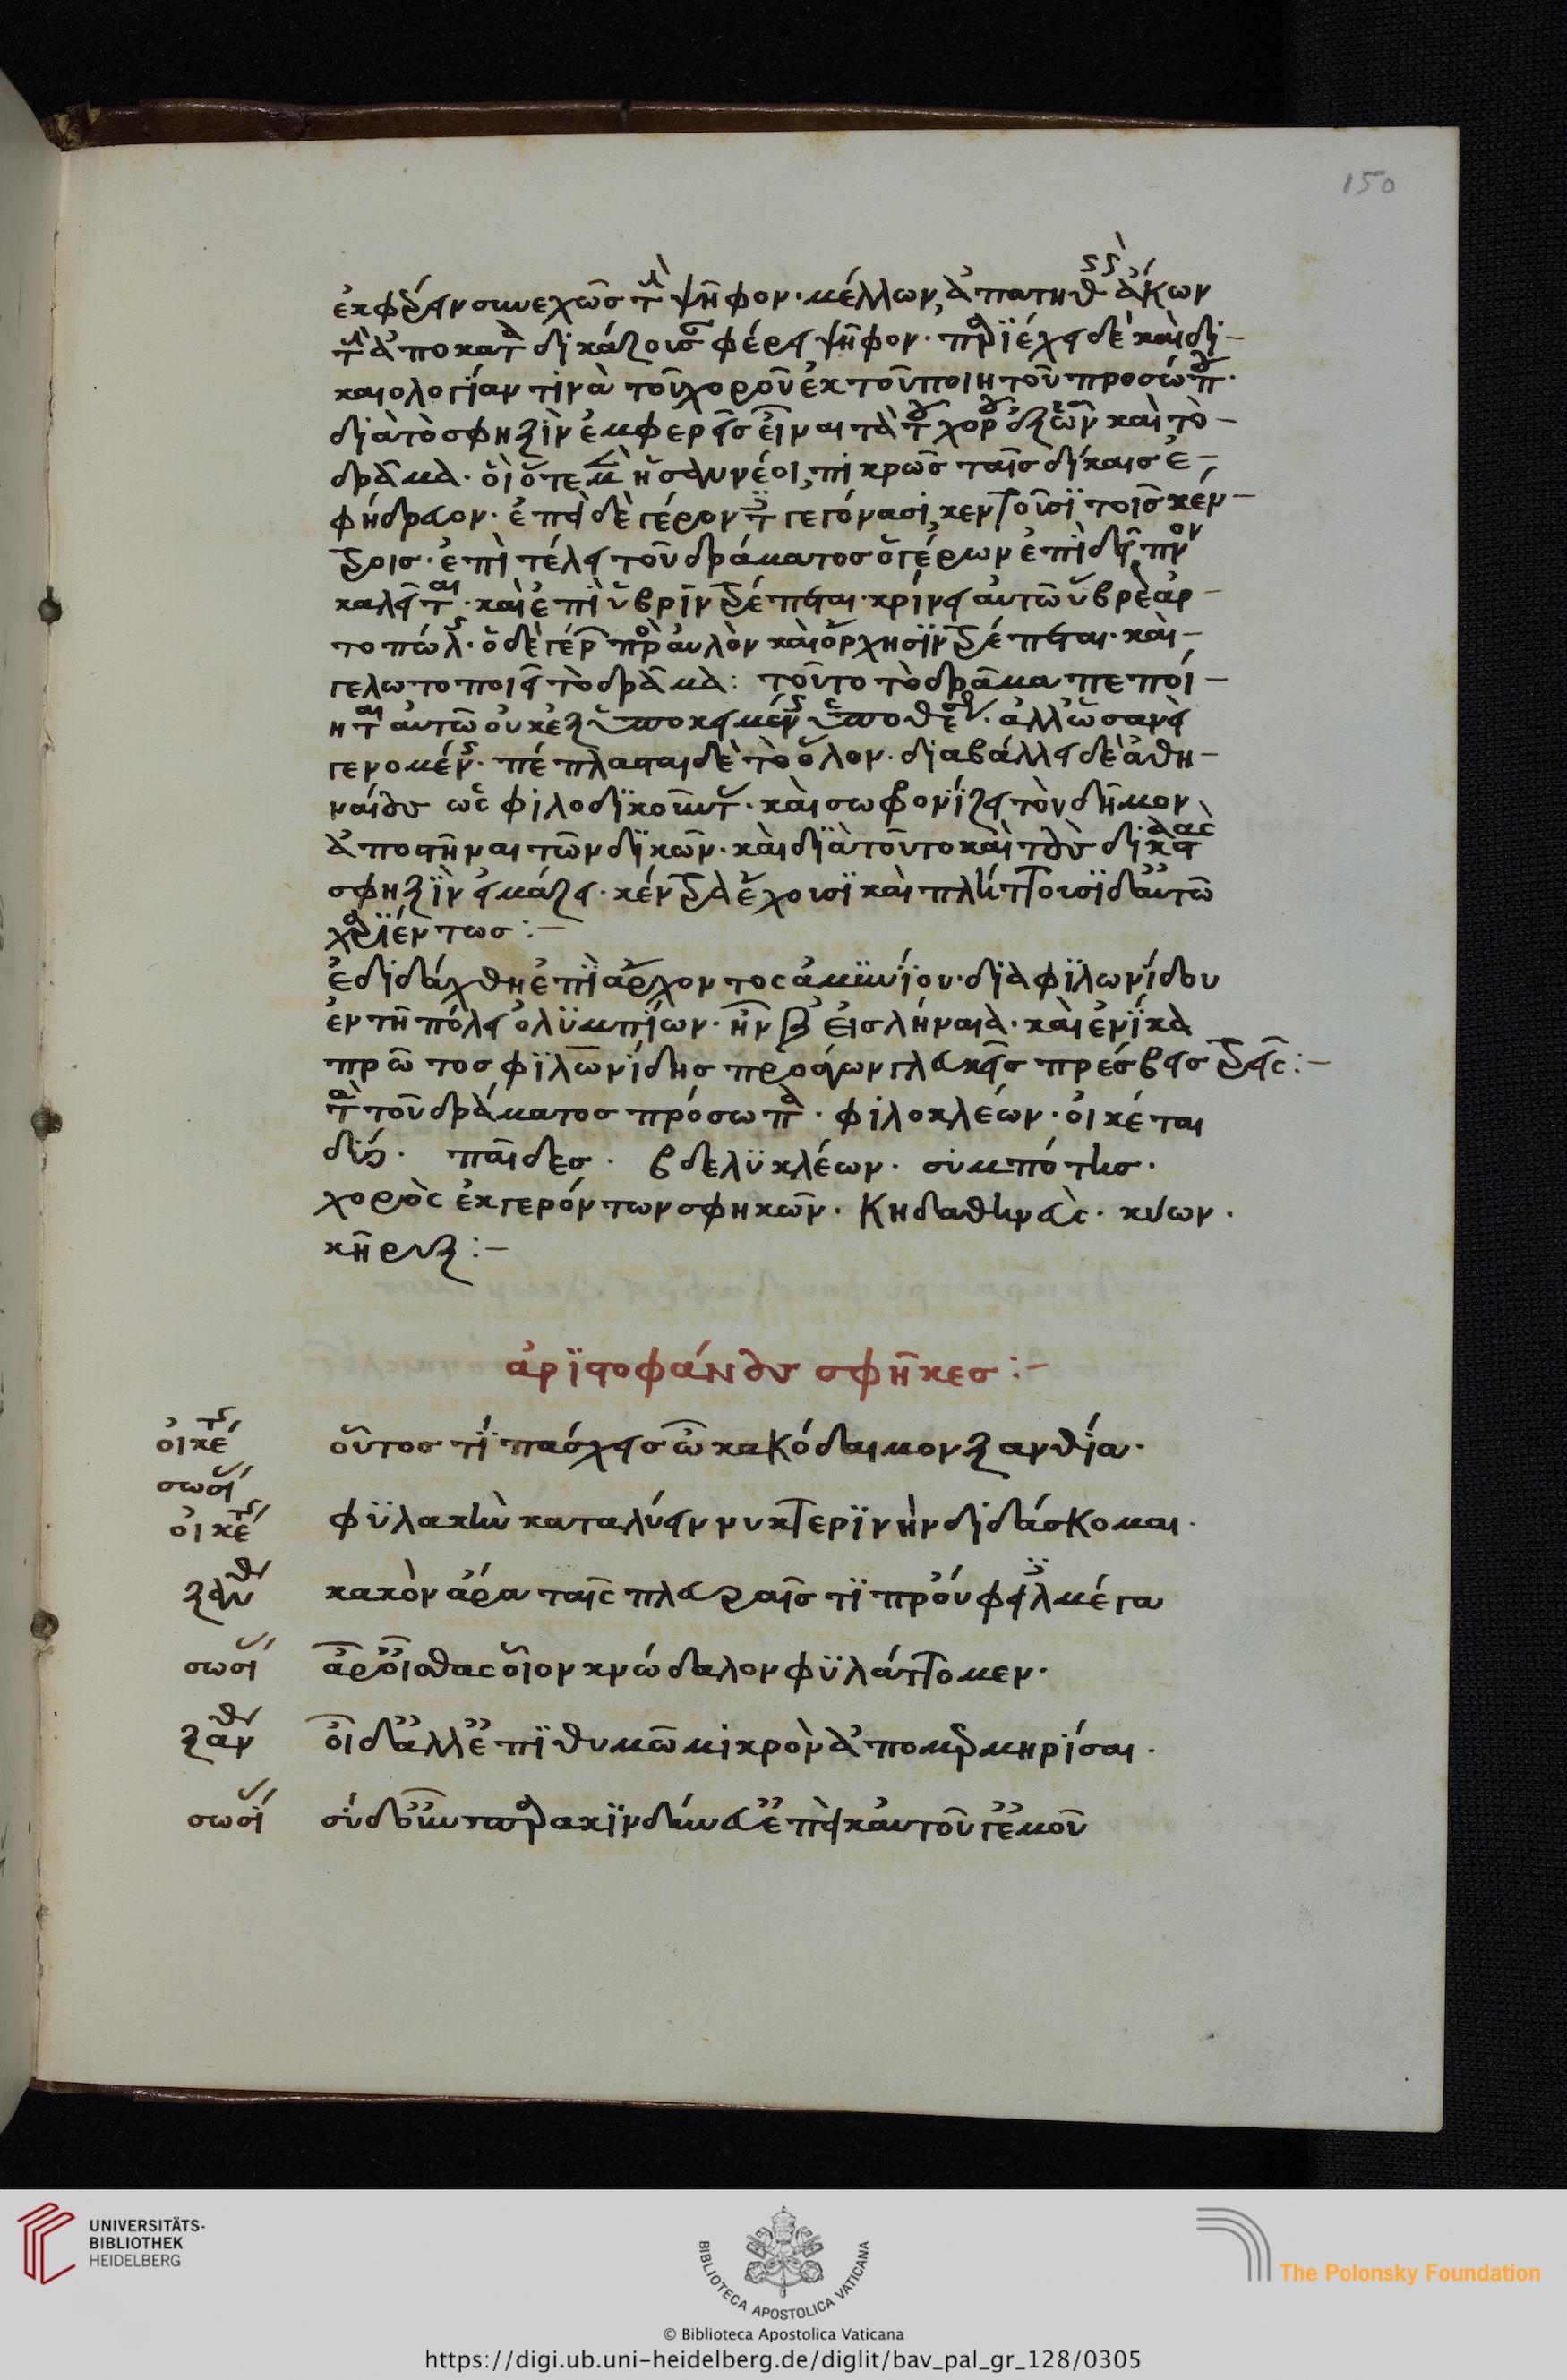 ἐκφέρειν συνεχῶς τὴν ψῆφον· μέλλων, ἀπατηθεὶς ἄκων
τὴν ἀποκατα δικάζουσαν φέρει ψῆφον· περιέχει δὲ καὶ δι-
καιολογίαν τινὰ τοῦ χοροῦ ἐκ τοῦ ποιητοῦ προσώπου·
διὰ τὸ σφηξὶν ἐμφερεῖς εἶναι τὰ τοῦ χοροῦ ἐξ ὧν καὶ τὸ
δρᾶμα· οἳ ὅτε μὲν ἦσαν νέοι, πικρῶς ταῖς δίκαις ἐ-
φήδρευον· ἐπεὶ δὲ γέροντες γεγόνασι, κεντοῦσι τοῖς κέν-
τροις· ἐπὶ τέλει τοῦ δράματος ὁ γέρων ἐπὶ δεῖπνον
καλεῖται· καὶ ἐπὶ ὕβριν τρέπεται· κρίνει αὐτῶ ὕβρεως ἀρ-
τοπώλης· ὁ δὲ γέρων πρὸς αὐλὸν καὶ ὄρχησιν τρέπεται· καὶ
γελωτοποιεῖ τὸ δρᾶμα: τοῦτο τὸ δρᾶμα πεποί-
ηται αὐτῶ οὐκ ἐξ ὑποκειμένης ὑποθέσεως· ἀλλ' ὡσανεὶ
γενομένης· πέπλασται δὲ τὸ ὅλον· διαβάλλει δὲ ἀθη-
ναίους ὡς φιλοδικοῦντας· καὶ σωφρονίζει τὸν δῆμον
ἀποστῆναι τῶν δικῶν· καὶ διὰ τοῦτο καὶ τοὺς δικαστὰς
σφηξὶν εἰκάζει· κέντρα ἔχουσι καὶ πλήττουσι δ' αὐτῶ
χαριέντως :-
ἐδιδάχθη ἐπὶ ἄρχοντος ἀμυνίου· διὰ φιλωνίδου
ἐν τῇ πόλει ὀλυμπίων· ἦν β' εἰς λήναια· καὶ ἐνίκα
πρῶτος φιλωνίδης προάγων γλευκεῖς πρέσβεις τρεῖς :-
τὰ τοῦ δράματος πρόσωπα· φιλοκλέων· οἰκέται
δύο· παῖδες· βδελυκλέων· συμπότης·
χορὸς ἐκ γερόντων σφηκῶν· Κηδαθηνεὺς· κύων·
κῆρυξ :-
ἀριστοφάνους σφῆκες :-
οἰκέτης οὗτος τί πάσχεις ὦ κακόδαιμον ξανθία·
σωσί
οἰκέτης φυλακὴν καταλύειν νυκτερινὴν διδάσκομαι·
ξανθ κακὸν ἄρα ταῖς πλευραῖς τι προὐφείλες μέγα
σωσί ἆρ' οἶσθας οἷον κνώδαλον φυλάττομεν·
ξανθ οἶδ' ἀλλ' ἐπιθυμῶ μικρὸν ἀπομερμηρίσαι·
σωσί σὺ δ' οὖν παρακινδύνευ' ἐπεὶ κ' αὐτοῦ γ' ἐμοῦ
150
UNIVERSITÄTS-
BIBLIOTHEK
HEIDELBERG
BIBLIOTECA APOSTOLICA VATICANA
The Polonsky Foundation
© Biblioteca Apostolica Vaticana
https://digi.ub.uni-heidelberg.de/diglit/bav_pal_gr_128/0305